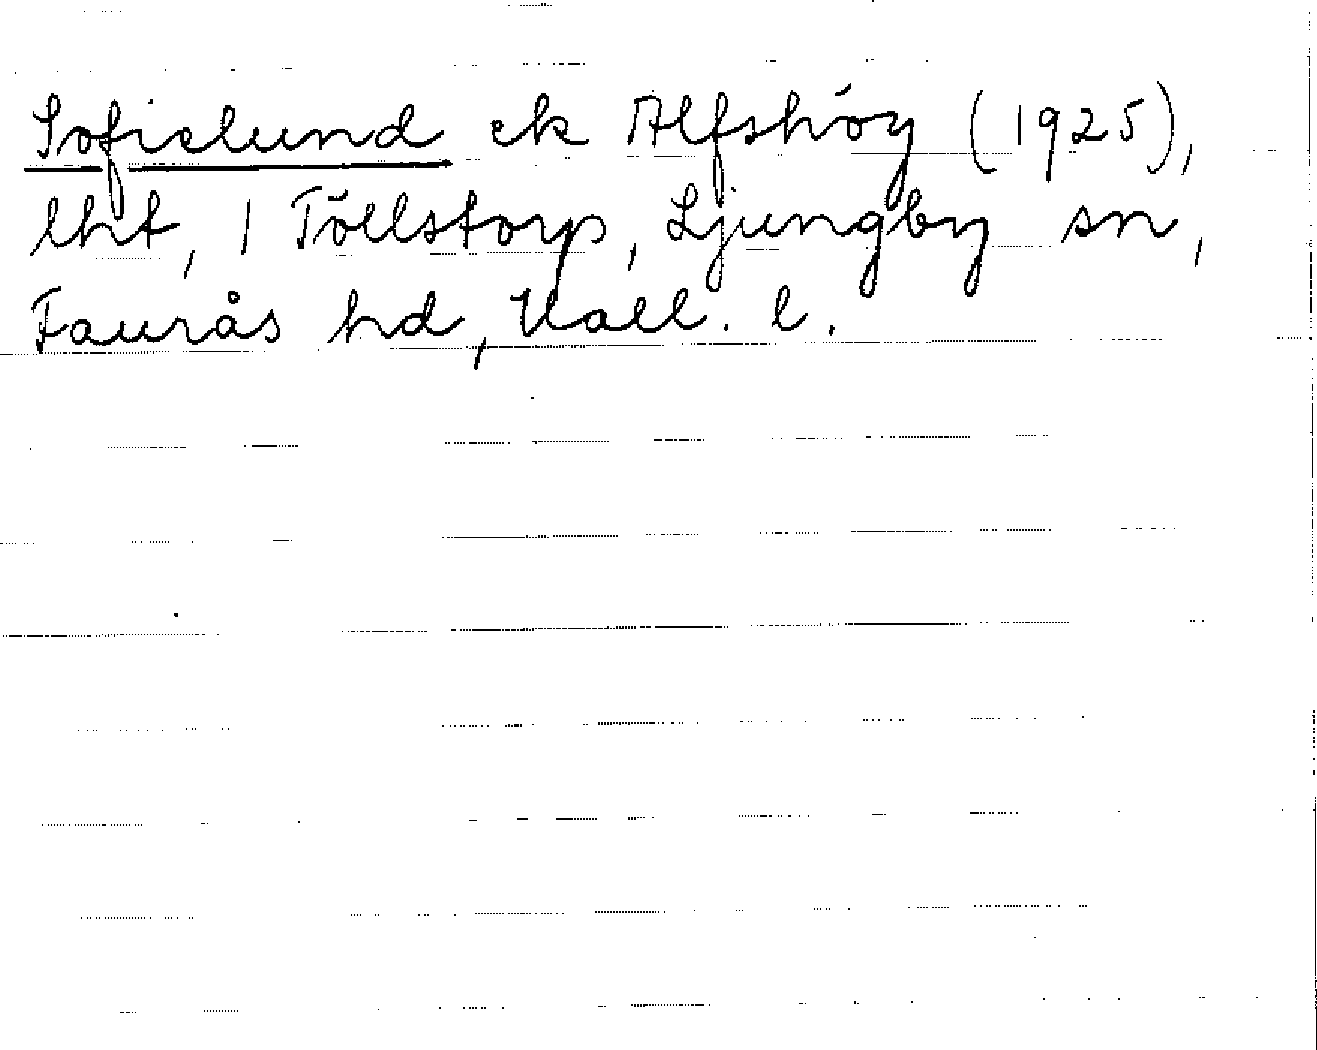 Sofielund ek Alfshög (1925),
lht, 1 Töllstorp, Ljungby sn,
Faurås hd, Hall. l.